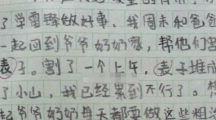 了学雷锋做好事，我周末和爸爸
一起回到爷爷奶奶家，帮他们
麦子。割了一个上午，麦子堆成
了小山，我已经累到不行了。
爷爷奶奶每天都要做这些粗